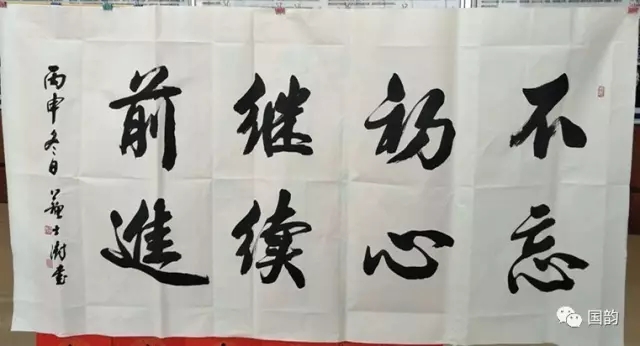 不忘
初心
继续
前進
丙申冬日 苏士澍书
国韵